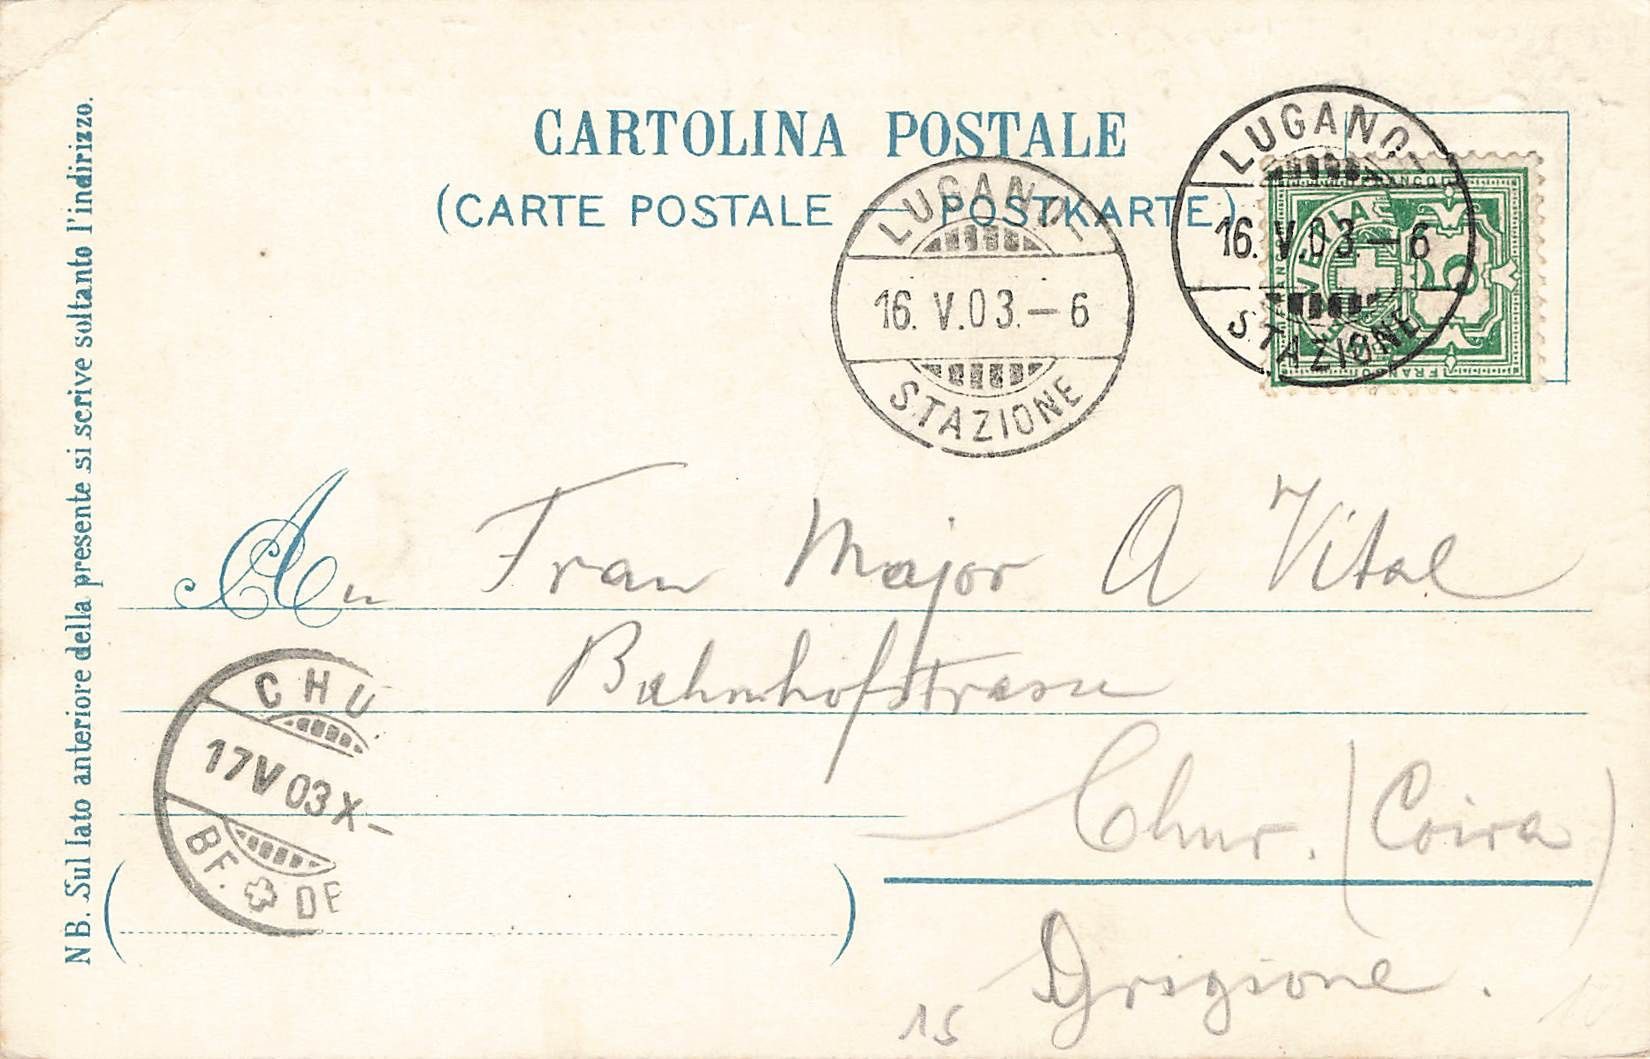 CARTOLINA POSTALE
(CARTE POSTALE — POSTKARTE)
LUGANO
16. V. 03. – 6
STAZIONE
LUGANO
16. V. 03. – 6
STAZIONE
FRANCO
5
FRANCO
An Frau Major A Vital
Bahnhofstrasse
Chur. (Coira)
Grigione.
15
CHU
17 V 03 X –
BF. DE
NB. Sul lato anteriore della presente si scrive soltanto l'indirizzo.